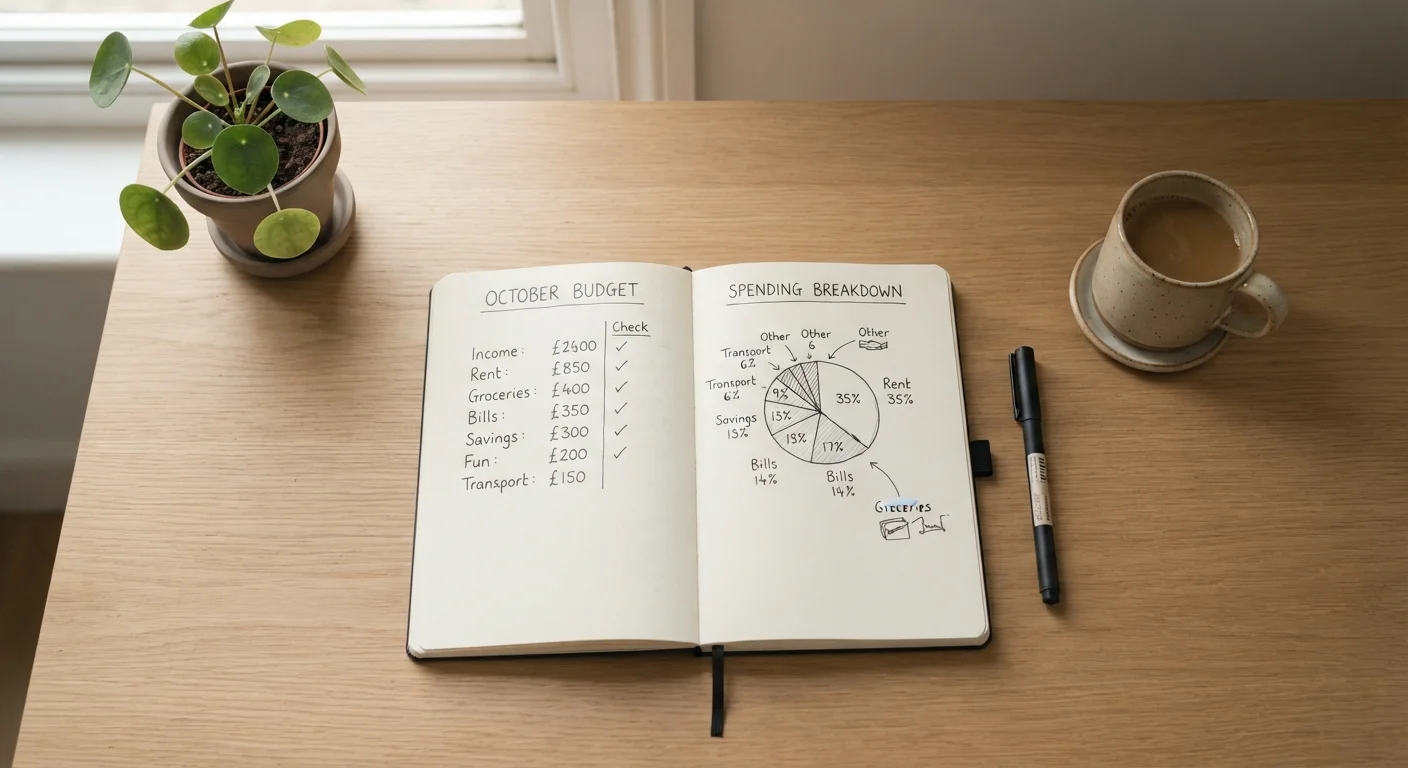 OCTOBER BUDGET
Check
Income: £2400 ✓
Rent: £850 ✓
Groceries: £400 ✓
Bills: £350 ✓
Savings: £300 ✓
Fun: £200 ✓
Transport: £150
SPENDING BREAKDOWN
Other
Other
6
Other
Transport
6%
Transport
6%
9%
35%
Rent
35%
Savings
15%
15%
19%
17%
Bills
14%
Bills
14%